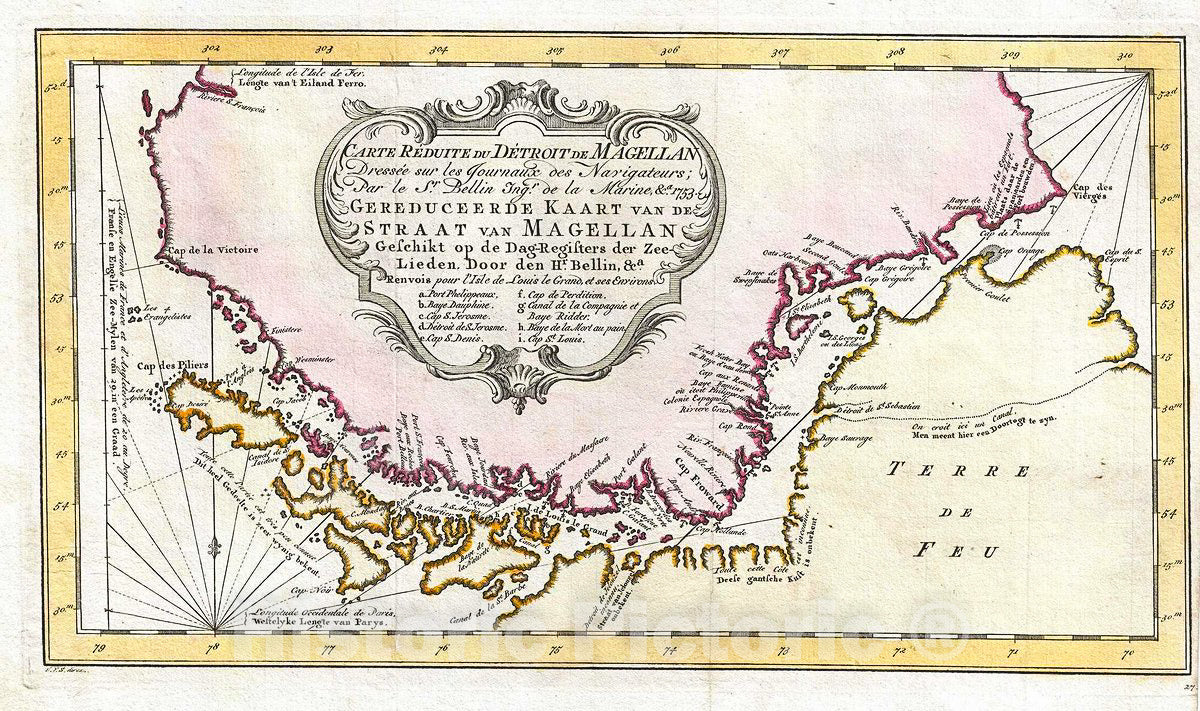 302 303 304 305 306 307 308 309 310
Longitude de l'Isle de Fer.
Lengte van't Eiland Ferro.
Riviere S. François
CARTE RÉDUITE DU DÉTROIT DE MAGELLAN
Dressée sur les Journaux des Navigateurs;
Par le Sr. Bellin Ingr. de la Marine, &a. 1753.
GEREDUCEERDE KAART VAN DE
STRAAT VAN MAGELLAN
Geschikt op de Dag-Registers der Zee-
Lieden, Door den Hr. Bellin, &a
Renvois pour l'Isle de Louis le Grand, et ses Environs.
a. Port Phelippeaux.
b. Baye Dauphine.
c. Cap S. Jerosme.
d. Détroit de S. Jerosme.
e. Cap S. Denis.
f. Cap de Perdition.
g. Canal de la Compagnie et
Baye Ridder.
h. Baye de la Mort au pain
i. Cap St. Louis.
52d
15
30m
45
53
15
30m
45
54
15m
30m
52d
15
30m
45
53
15
30m
45
54
15m
30m
Cap des
Vierges
Baye de
Possession
Cap de Possession
Cap Orange
Cap du S.
Esprit
Premier Goulet
Baye Grégoire
Cap Grégoire
Baye Boucant
Second Goulet
Oats Harbour
Baye de
Sweepstakes
I. St. Elisabeth
I. S. Barthelemi
I. S. Georges
ou des Lions
Cap de la Victoire
Les 4
Evangelistes
Lieues Marines de France et d'Angleterre de 20 au Degré.
Franse en Engelse Zee-Mylen van 20 in een Graad
Finistere
Westminster
Cap des Piliers
Les 4
Apôtres
Cap Desiré
Canal de S.
Isidore
Toute cette Partie
est très peu connue.
Dit heel Gedeelte is zeer weynig bekent.
Fresh Water Bay
ou Baye d'eau douce
Cap aux Renards
Baye Famine
où étoit Philippeville
Colonie Espagnole
Riviere Grave
Pointe
Ste. Anne
Cap Rond
Cap Monmouth
Détroit de St. Sebastien
On croit ici un Canal.
Men meent hier een Doortogt te zyn.
Baye Sauvage
Riviere du Massacre
Baye Elisabeth
Port Galant
Cap Froward
Cap Hollande
de Louis le Grand
TERRE
DE
FEU
Toute cette Côte est inconnue.
Deese gantsche Kust is onbekent
Baye de
la Nativité
Cap Noir
Canal de la Ste. Barbe
Longitude Occidentale de Paris.
Westelyke Lengte van Parys.
79 78 77 76 75 74 73 72 71 70
Historic Pictoric ®
27.